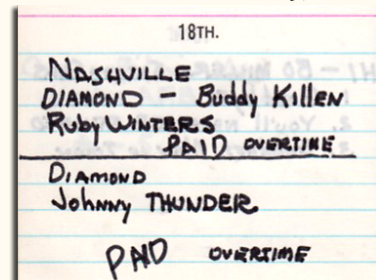 18TH.
NASHVILLE
DIAMOND - Buddy Killen
Ruby WINTERS
PAID OVERTIME
DIAMOND
Johnny THUNDER
PAID OVERTIME